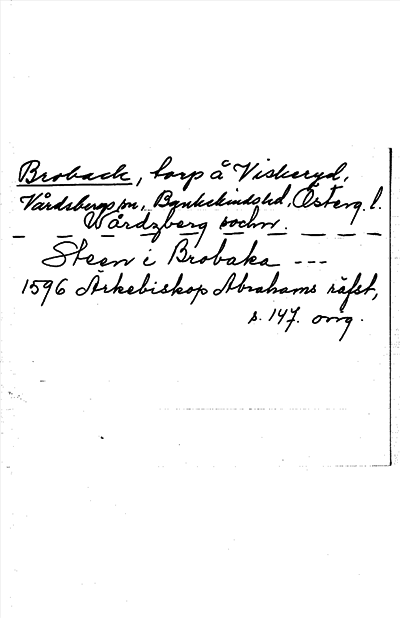 Broback, torp å Viskeryd,
Vårdsbergs sn, Bankekinds hd, Österg. l.
Wårdzberg sochn.
Steen i Brobaka ---
1596 Ärkebiskop Abrahams räfst,
s. 147. orig.